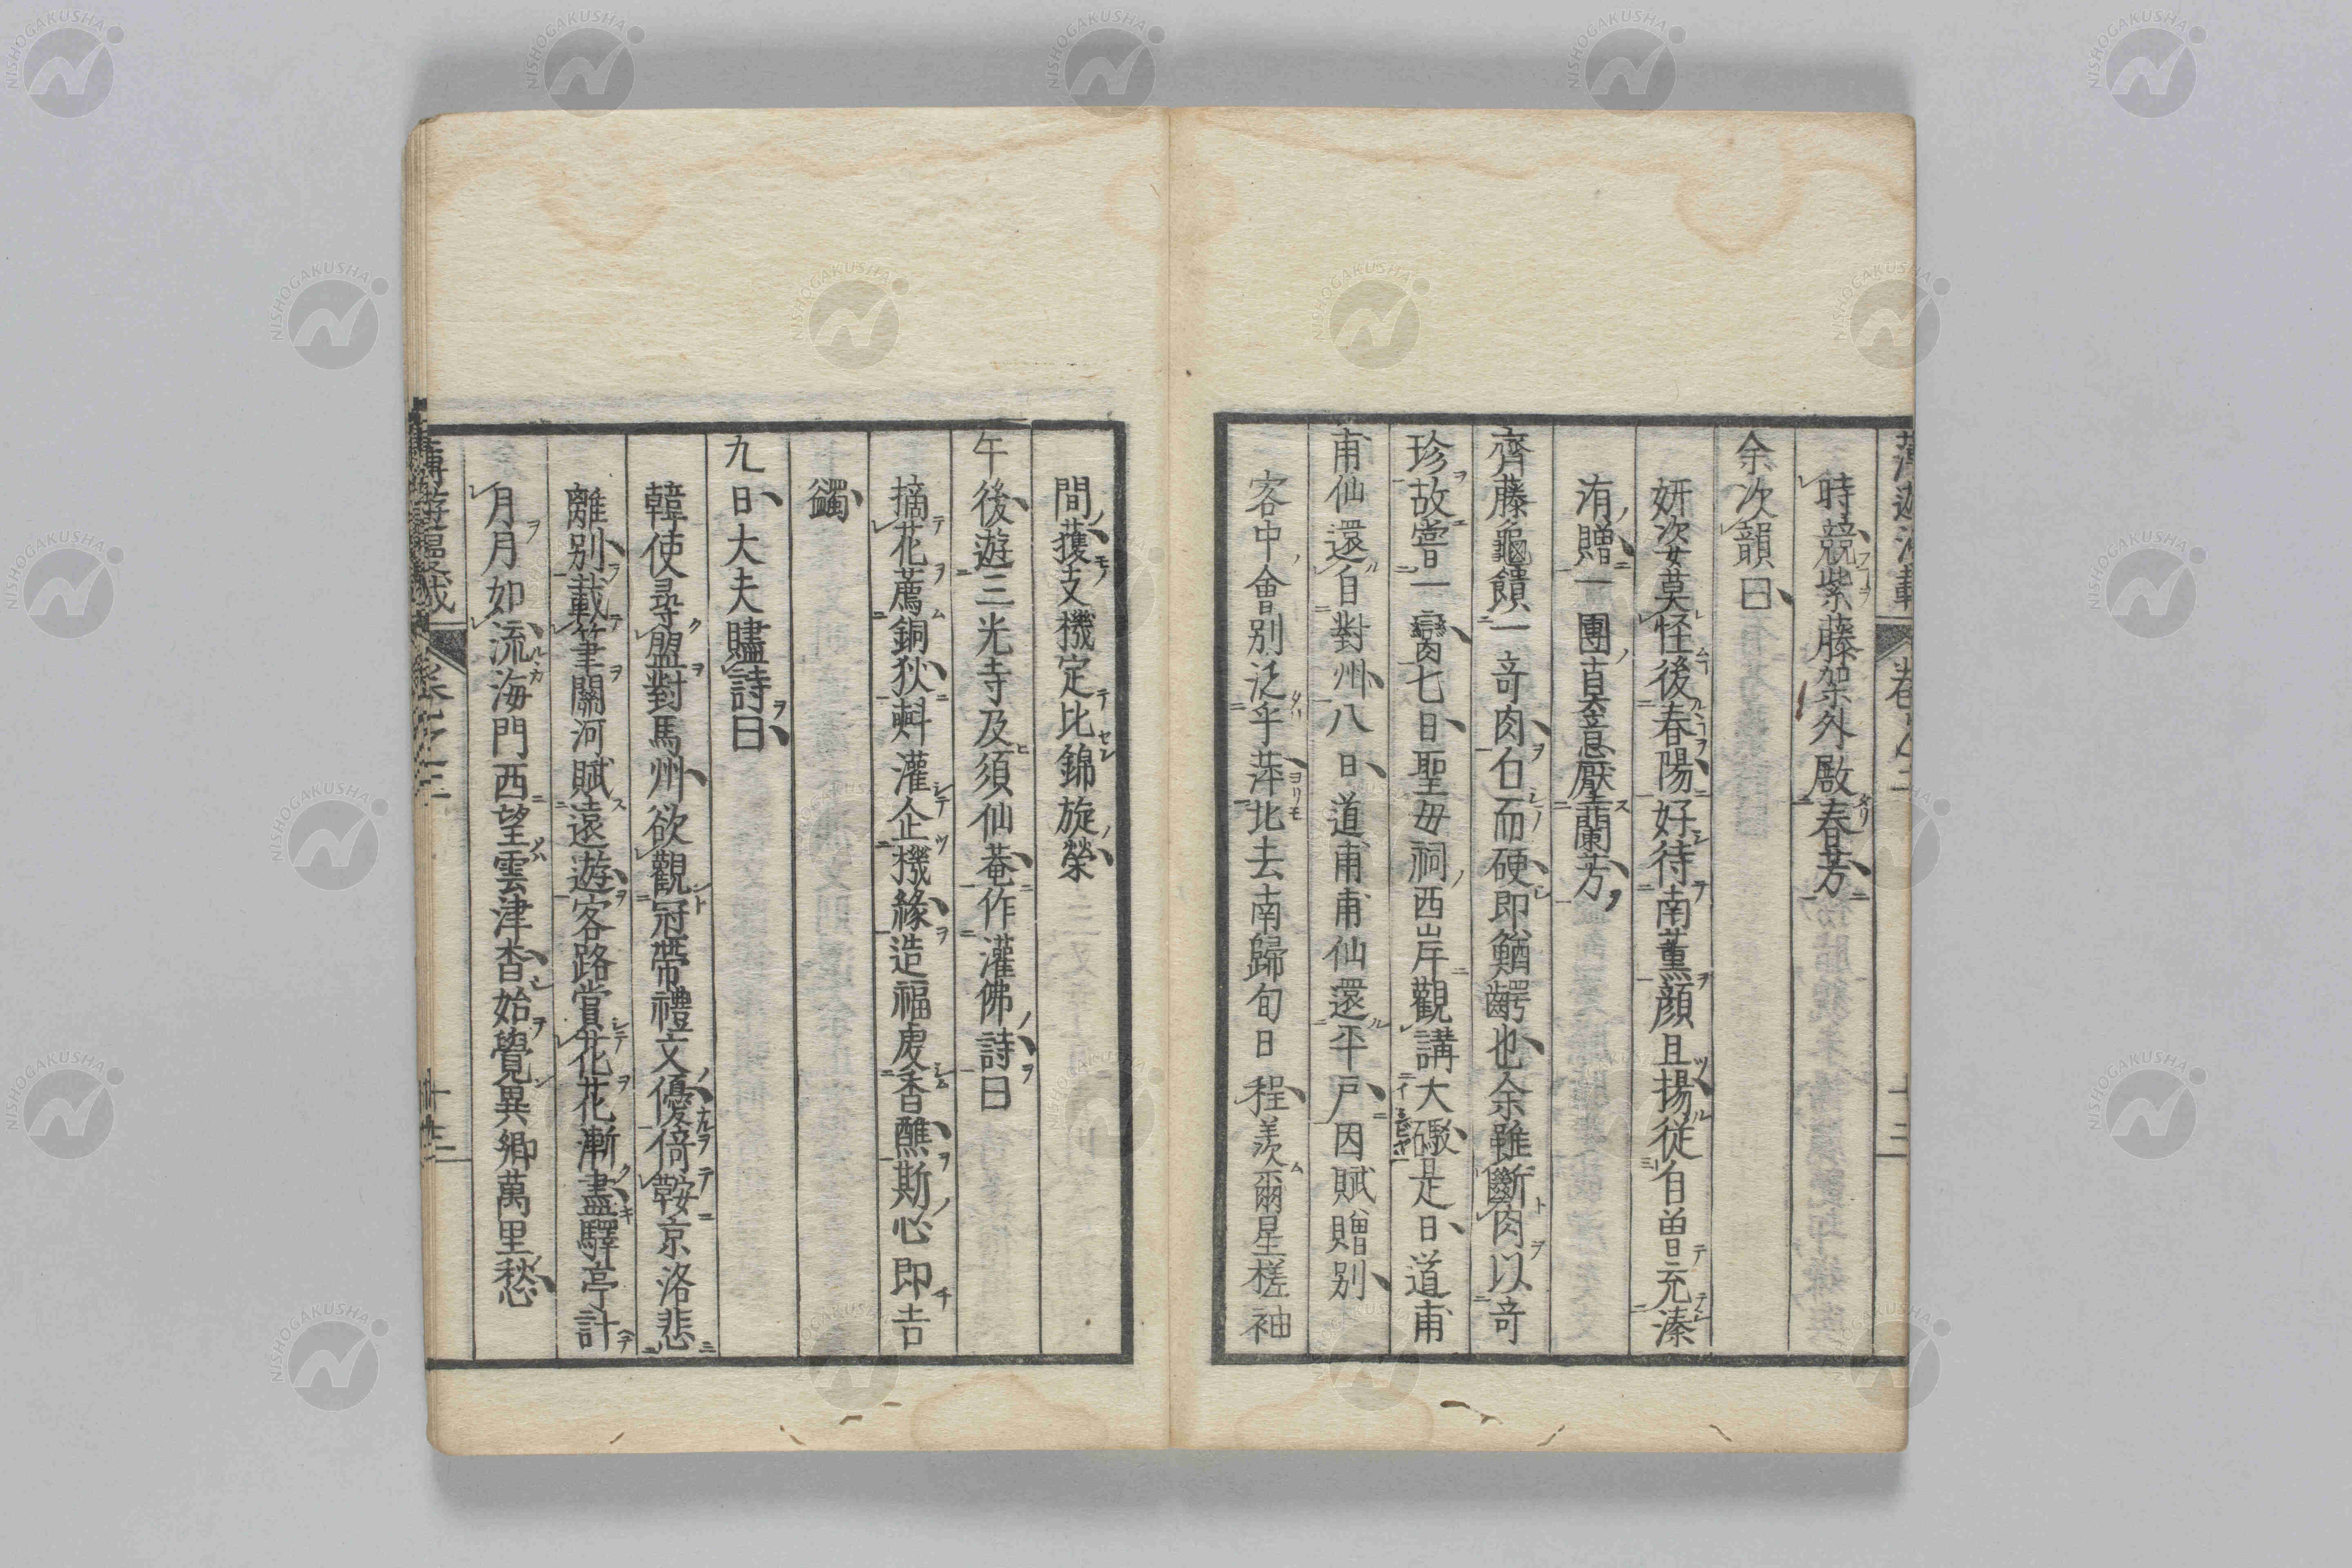 時競紫藤架外殿春芳
余次韻曰
妍姿莫怪後春陽好待南薰顔且揚從自曽充溱
洧贈一團真意壓蘭芳
齊藤龜饋一竒肉白而硬即鰌齶也余雖斷肉以竒
珍故嘗一臠七日聖毋祠西岸觀講大礟是日道甫
甫仙還自對州八日道甫甫仙還平戸因賦贈别
客中會别泛乎萍北去南歸旬日程羡爾星槎袖
間獲支機定比錦旋榮
午後遊三光寺及須仙菴作灌佛詩曰
摘花薦銅狄㪺灌企機緣造福處香醮斯心即吉
蠲
九日大夫贐詩曰
韓使尋盟對馬州欲觀冠帶禮文優倚鞍京洛悲
離别載筆關河賦遠遊客路賞花花漸盡驛亭計
月月如流海門西望雲津杳始覺異鄉萬里愁